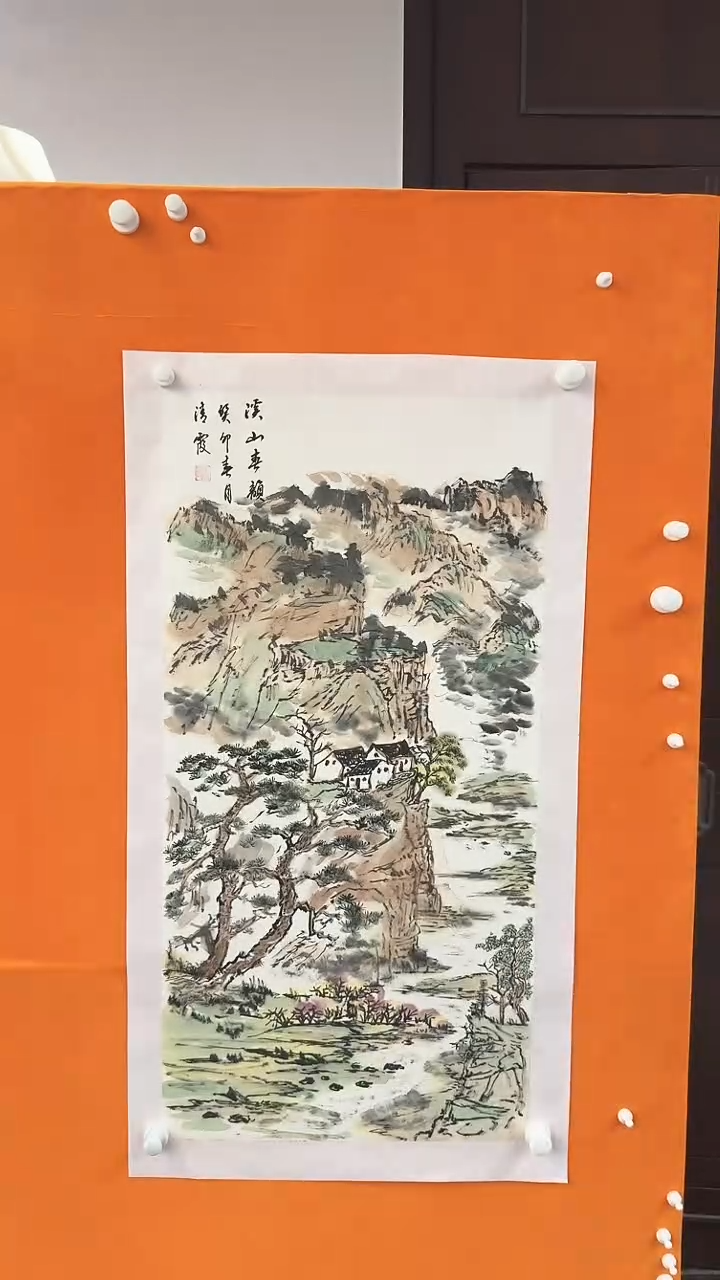 溪山春韻
癸卯春月
清霞